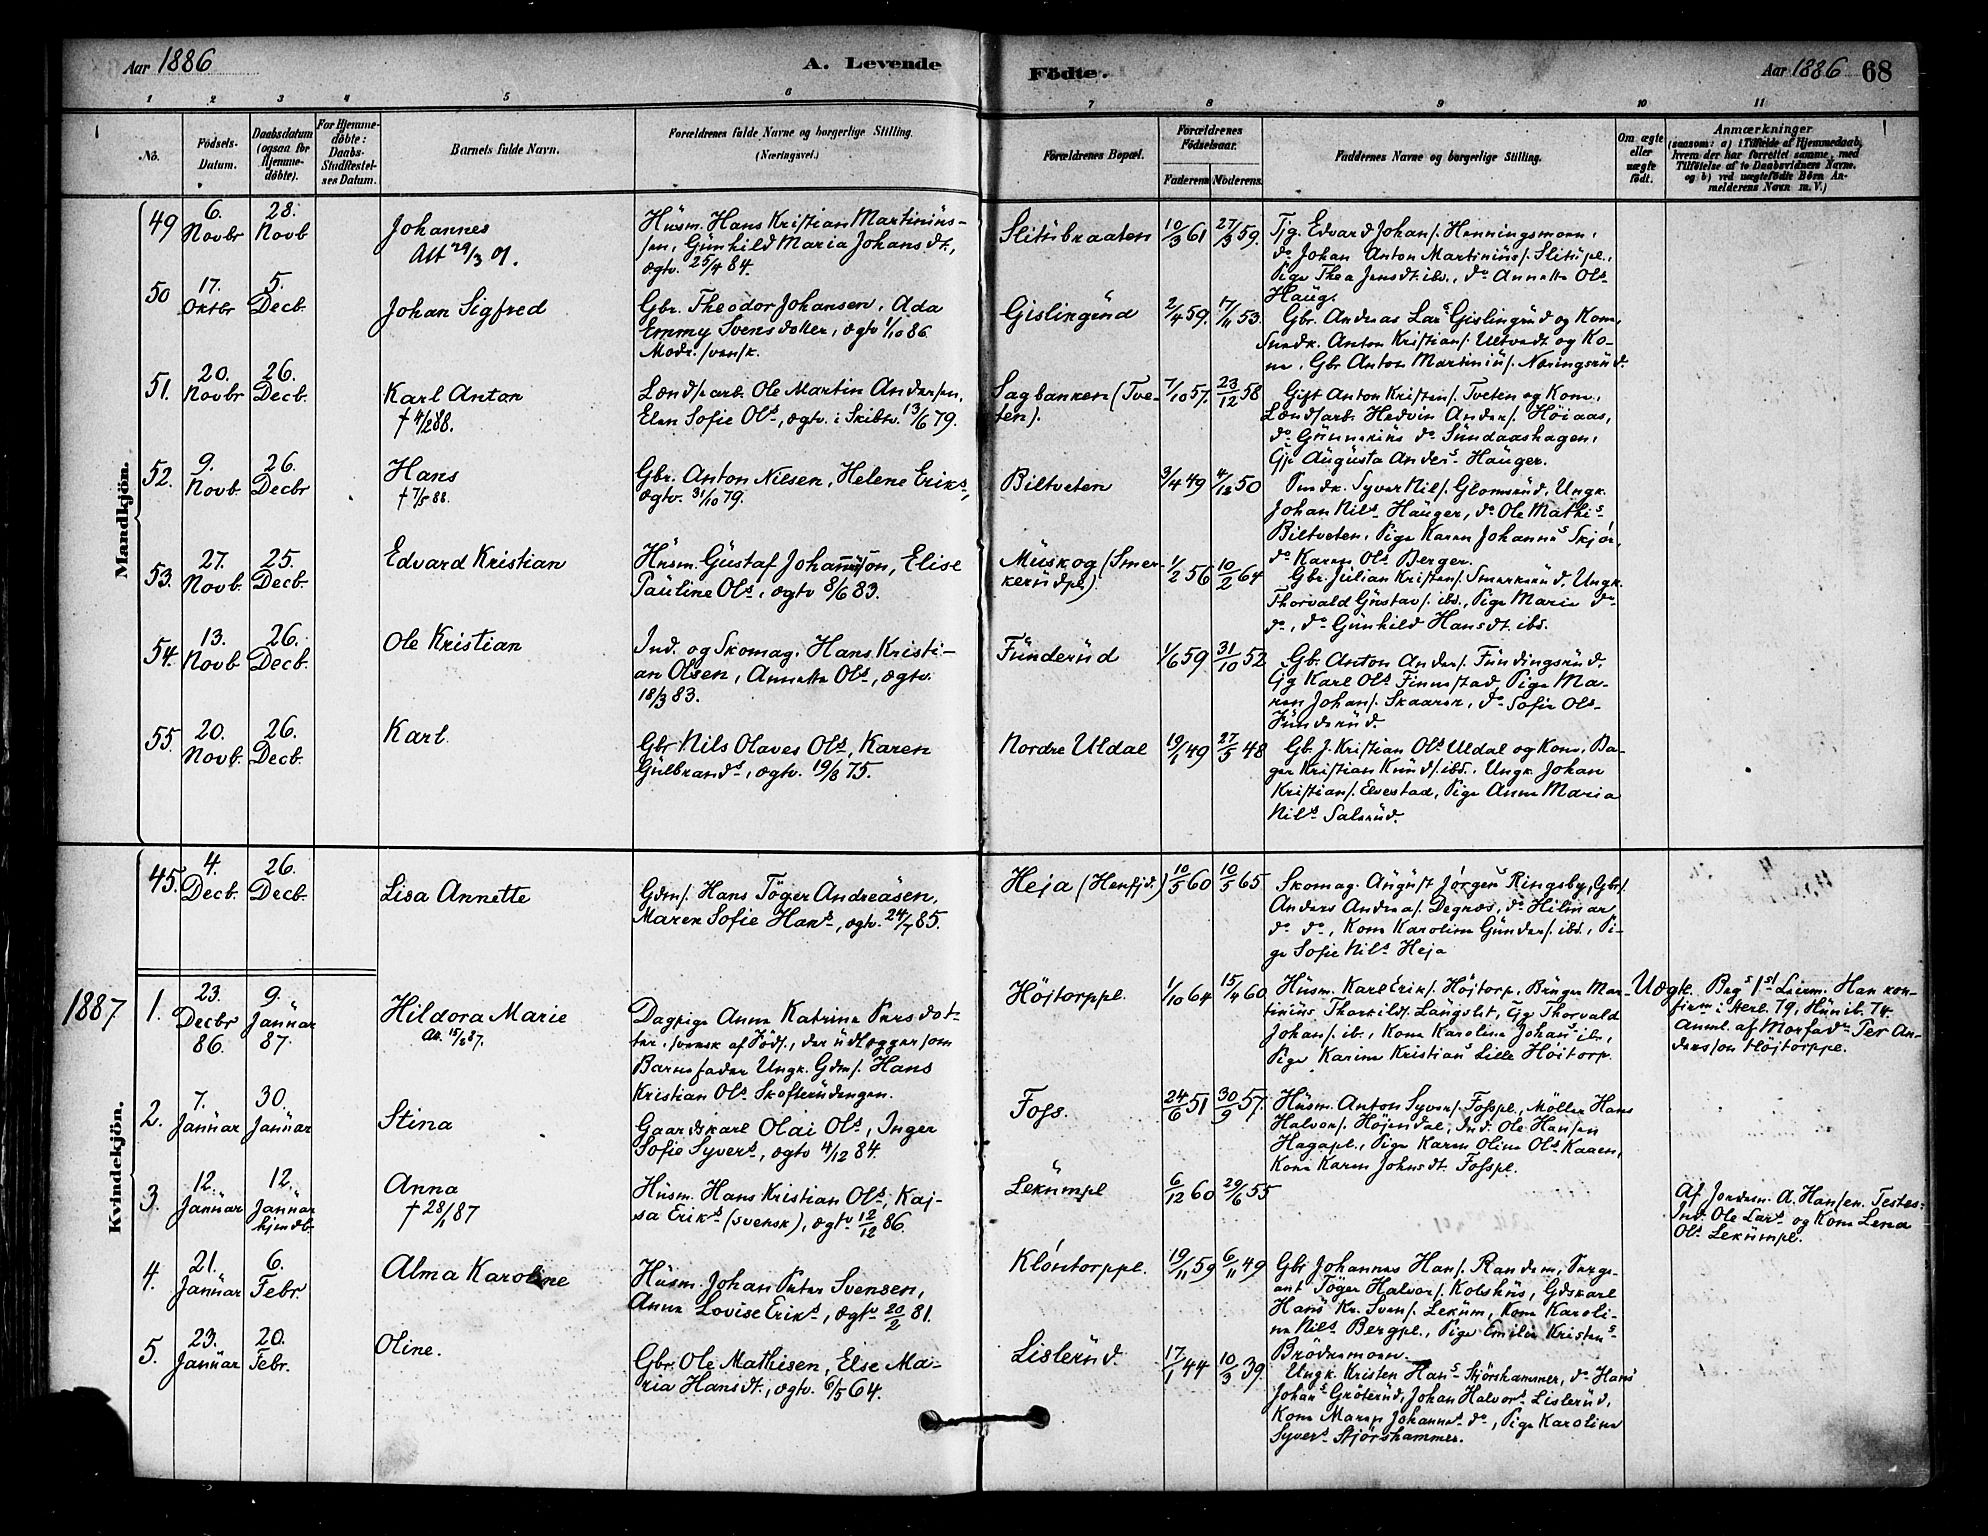 Aar 1886
A. Levende
Födte.
Aar 1886 68
1 2 3 4 5 6 7 8 9 10 11
No.
Födsels-
Datum.
Daabsdatum
(ogsaa for
Hjemme-
döbte).
For Hjemme-
döbte:
Daabs-
Stadfæstel-
ses Datum.
Barnets fulde Navn.
Forældrenes fulde Navne og borgerlige Stilling.
(Næringsvei.)
Forældrenes Bopæl.
Forældrenes
Födselsaar.
Faderens. Moderens.
Faddernes Navne og borgerlige Stilling.
Om ægte
eller
uægte
födt.
Anmærkninger
(saasom: a) i Tilfælde af Hjemmedaab,
hvem der har forrettet samme, med
Tilföielse af to Daabsvidners Navne.
og b) ved uægtefödte Börn An-
melderens Navn m. V.)
Mandkjön.
49
6.
Novbr
28.
Novb
Johannes
Att 29/3 01.
Husm. Hans Kristian Martinius-
sen, Gunhild Maria Johansdt.,
ægtv. 25/4 84.
Slitubraaten
10/3 61
27/3 59.
Tjg. Edvard Johans. Henningsmoen,
do Johan Anton Martinius. Slitupl.,
Pige Thea Jensdt. ibd., do Annette Ols
Haug.
50
17.
Oktbr
5.
Decb.
Johan Sigfred
Gbr. Theodor Johansen, Ada
Emmy Svensdotter, ægtv 1/10 86
Modr. svensk.
Gislingrud
2/4 59.
17/11 53.
Gbr. Andreas Lars Gislingrud og Kone,
Snedk. Anton Kristians. Ultvedt og Ko-
ne, Gbr Anton Martinius. Næringsrud.
51.
20.
Novbr
26.
Decb.
Karl Anton
† 4/2 88.
Landsarb. Ole Martin Andersen,
Elen Sofie Ols, ægtv. i Skibtv. 13/6 79.
Sagbanken (Tve-
ten).
7/10 57.
23/12 58
Gift Anton Kristens. Tveten og Kone,
Landsarb. Hedvin Anders. Höiaas,
do Gunnerius do Sundaashagen,
Gp Augusta Anders Hauger.
52.
9.
Novb.
26.
Decbr
Hans
† 7/5 88.
Gbr. Anton Nilsen, Helene Eriks,
ægtv. 31/10 79.
Biltveten
3/4 49
4/12 50
Snedk. Syver Nils. Glomsrud, Ungk.
Johan Nils Hauger, do Ole Mathis
Biltveten, Pige Karen Johannes Skjör,
do Karen Ols Berger.
53.
27.
Novb.
25.
Decb.
Edvard Kristian
Husm. Gustaf Johansson, Elise
Pauline Ols, ægtv 8/6 83.
Muskog (Smer-
kerudpl.)
1/2 56
10/2 64
Gbr. Julian Kristens. Smerkerud, Ungk.
Thorvald Gustavs. ibd., Pige Marie do
do, do Gunhild Hansdt. ibd.
54.
13.
Novb
26.
Decb.
Ole Kristian
Ind. og Skomag. Hans Kristi-
an Olsen, Annette Ols, ægtv.
18/3 83.
Funderud
1/6 59
31/10 52
Gb. Anton Anders. Fundingsrud,
Gg Karl Ols Finnestad, Pige Ma-
ren Johans. Skaaren, do Sofie Ols
Funderud.
55.
20.
Novb.
26.
Decb.
Karl.
Gbr Nils Olaves Ols, Karen
Gulbrands, ægtv. 19/8 75.
Nordre Uldal
19/1 49
27/5 48
Gb. J. Kristian Ols Uldal og Kone, Ba-
ger Kristian Knuds. ibd., Ungk. Johan
Kristians. Elvestad, Pige Anne Maria
Nils Salerud.
Kvindekjön.
45.
4.
Decb.
26.
Decb.
Lisa Annette
Gdms. Hans Töger Andreasen,
Maren Sofie Hans, ægtv. 24/7 85.
Heja (Henfjd.)
10/5 60
10/5 65
Skomag. August Jörgens Ringsby, Gbrs.
Anders Andreas. Degnæs, do Hilmar
do do, Kone Karoline Gunders. ibd., Pi-
ge Sofie Nils Heja
1887
1.
23.
Decbr
86.
9.
Januar
87.
Hildora Marie
Att. 15/8 87.
Dagpige Anna Katrine Persdot-
ter, svensk af Föds., der udlægger som
Barnefader Ungk. Gdms. Hans
Kristian Ols Skofterudengen.
Höjtorppl.
1/10 64
15/4 60
Husm. Karl Eriks. Höjtorp, Bruger Mar-
tinius Thorkilds. Langslet, Gg Thorvald
Johans. ib., Kone Karoline Johans ib.,
Pige Karine Kristians Lille Höitorp.
Uægk.
Begs 1st Leierm. Han kon-
firm. i Herl. 79, Hun ib. 74.
Anml. af Morfadr Per An-
dersson Höjtorppl.
2.
7.
Januar
30.
Januar
Stina
Gaardskarl Olai Ols, Inger
Sofie Syvers, ægtv 4/12 84.
Foss.
24/6 51
30/9 57.
Husm. Anton Syvers. Fosspl., Möller Hans
Halvors. Höjendal, Ind. Ole Hansen
Hagapl., Pige Karen Oline Ols Kaaen,
Kone Karen Johnsdt. Fosspl.
3.
12.
Januar
12.
Januar
hjmdb.
Anna
† 28/1 87
Husm. Hans Kristian Ols, Kaj-
sa Eriks (svensk), ægtv 12/12 86.
Lekumpl
6/12 60
29/6 55
Af Jordem. A. Hansen. Testes:
Ind. Ole Lars og Kone Lena
Ols Lekumpl.
4.
21.
Januar
6.
Febr.
Alma Karoline
Husm. Johan Peter Svensen,
Anne Lovise Eriks, ægtv 20/2 81.
Klöntorppl.
19/11 59
6/11 49
Gbr Johannes Hans. Randem, Serge-
ant Töger Halvors. Kolshus, Gdskarl
Hans Kr. Svens. Lekum, Kone Karoli-
ne Nils Bergpl., Pige Emilie Kristens
Brödremoen.
5.
23.
Januar
20.
Febr.
Oline.
Gbr. Ole Mathisen, Else Ma-
ria Hansdt., ægtv. 6/5 64.
Lislerud.
17/1 44
10/3 39.
Ungk. Kristen Hans Stjörshammer, do Hans
Johans Gröterud, Johan Halvors Lislerud,
Kone Maren Johannes do, Pige Karoline
Syvers Stjörshammer.